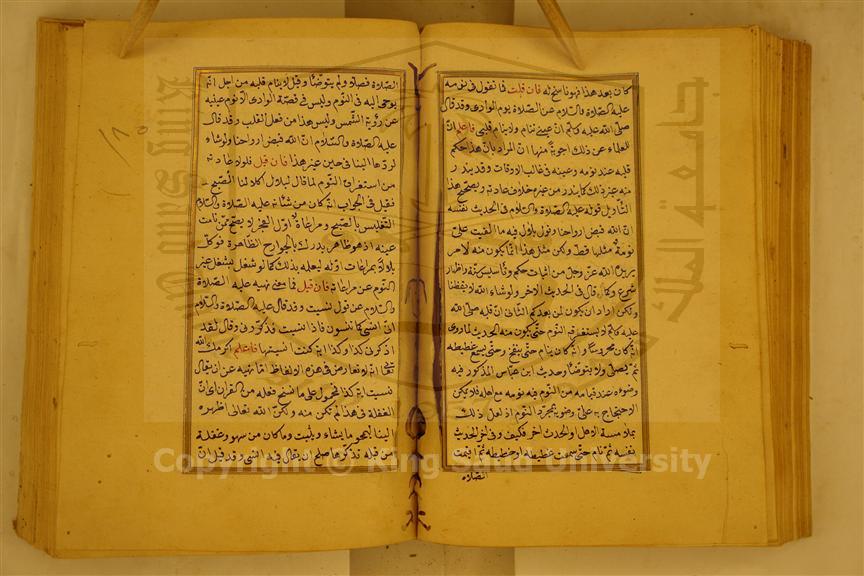 كان بعد هذا فهو ناسخ له فان قلت فما تقول فى نومه
عليه الصلاة والسلام عن الصلاة يوم الوادى وقد قال
صلى الله عليه وسلم ان عينى تنام ولا ينام قلبى فاعلم ان
للعلماء عن ذلك اجوبة منها ان المراد بان هذا حكم
قلبه عند نومه وعينه فى غالب الاوقات وقد يندر
منه غير ذلك كما يندر من غيره خلاف عادته ويصحح هذا
التأويل قوله عليه الصلاة والسلام فى الحديث نفسه
ان الله قبض ارواحنا وقول بلال فيه ما القيت على
نومة مثلها قط ولكن مثل هذا انما يكون منه لامر
يريد الله عز وجل من اثبات حكم وتأسيس سنة واظهار
شرع وكما قال فى الحديث الاخر ولو شاء الله لايقظنا
ولكن اراد ان يكون لمن بعدكم الثانى ان قلبه صلى الله
عليه وسلم لا يستغرقه النوم حتى يكون منه الحدث لما روى
انه كان محروسا وانه كان ينام حتى ينفخ وحتى يسمع غطيطه
ثم يصلى ولا يتوضأ وحديث ابن عباس المذكور فيه
وضوءه عند قيامه من النوم فيه نومه مع اهله فلا يمكن
الاحتجاج به على وضوءه بمجرد النوم اذ لعل ذلك
بملامسة الاهل والحدث اخر فكيف وفى اخر الحديث
نفسه ثم نام حتى سمعت غطيطه او خطيطه ثم اقيمت
الصلاة
الصلاة فصلى ولم يتوضأ وقيل لا ينام قلبه من اجل انه
يوحى اليه فى النوم وليس فى قصة الوادى الا نوم عينيه
عن رؤية الشمس وليس هذا من فعل القلب وقد قال
عليه الصلاة والسلام ان الله قبض ارواحنا ولو شاء
لردها الينا فى حين غير هذا فان قيل فلولا عادته
من استغراق النوم لما قال لبلال اكلأ لنا الصبح
فقيل فى الجواب انه كان من شأنه عليه الصلاة والسلام
التغليس بالصبح ومراعاة اول الفجر لا يصح ممن نامت
عينه اذ هو ظاهر يدرك بالجوارح الظاهرة فوكل
بلالا بمراعات اوله ليعلمه بذلك كما لو شغل بشغل غير
النوم عن مراعاته فان قيل فما معنى نهيه عليه الصلاة
والسلام عن قول نسيت وقد قال عليه الصلاة والسلام
انى انسى كما تنسون فاذا نسيت فذكرونى وقال لقد
اذكرنى كذا وكذا اية كنت انسيتها فاعلم اكرمك الله
انه لا تعارض فى هذه الالفاظ اما نهيه عن ان يقال
نسيت اية كذا فمحمول على ما نسخ فعله من القران اى ان
الغفلة فى هذا لم تكن منه ولكن الله تعالى اظهره
الينا ليمحو ما يشاء ويثبت وما كان من سهو وغفلة
من قبله تذكرها صلح ان يقال فيه انسى وقد قيل ان
Copyright © King Saud University
King Saud University
جامعة الملك